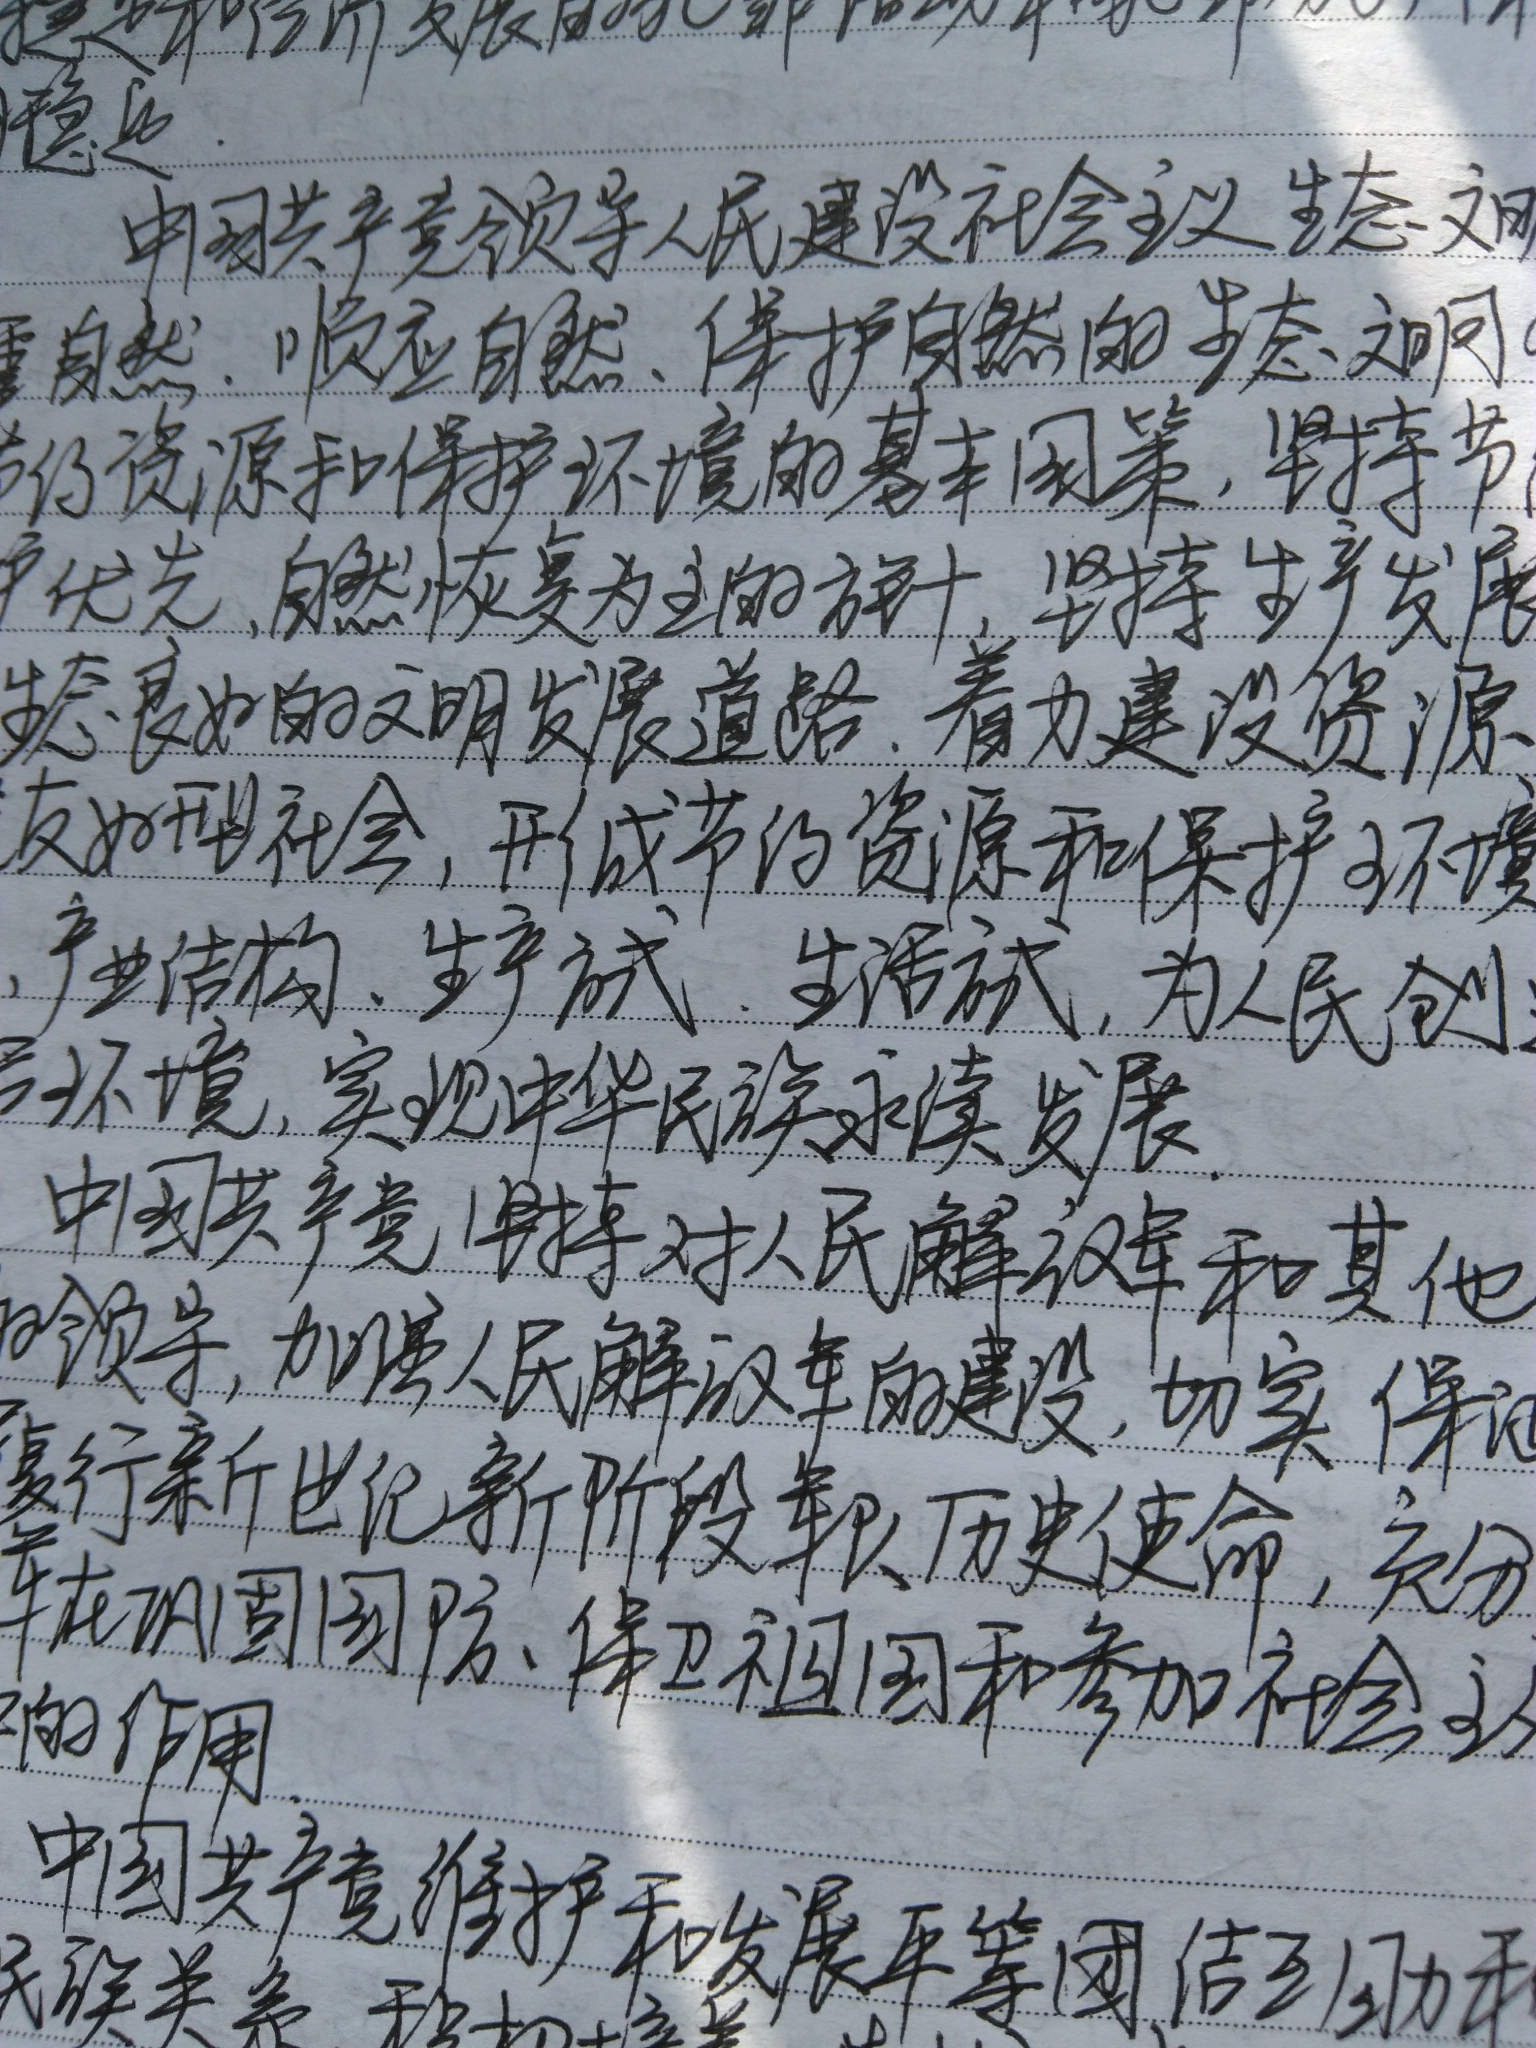 稳定.
中国共产党领导人民建设社会主义生态文明
自然.顺应自然、保护自然的生态文明
约资源和保护环境的基本国策,坚持节
优先、自然恢复为主的方针,坚持生产发展
生态良好的文明发展道路.着力建设资源
友好型社会,形成节约资源和保护环境
、产业结构、生产方式.生活方式,为人民创
环境,实现中华民族永续发展.
中国共产党坚持对人民解放军和其他
的领导,加强人民解放军的建设,切实保证
履行新世纪新阶段军队历史使命,充分
军在巩固国防、保卫祖国和参加社会主义
的作用.
中国共产党维护和发展平等团结互助和
民族关系,积极培养